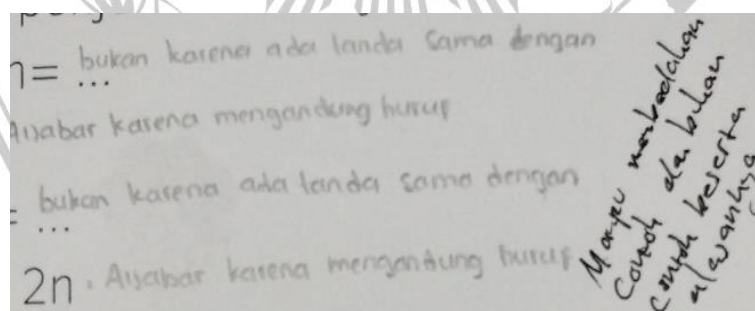 n = bukan karena ada tanda sama dengan
...
Aljabar karena mengandung huruf
= bukan karena ada tanda sama dengan
...
2n . Aljabar karena mengandung huruf
Mampu membedakan
contoh dan bukan
contoh beserta
alasannya